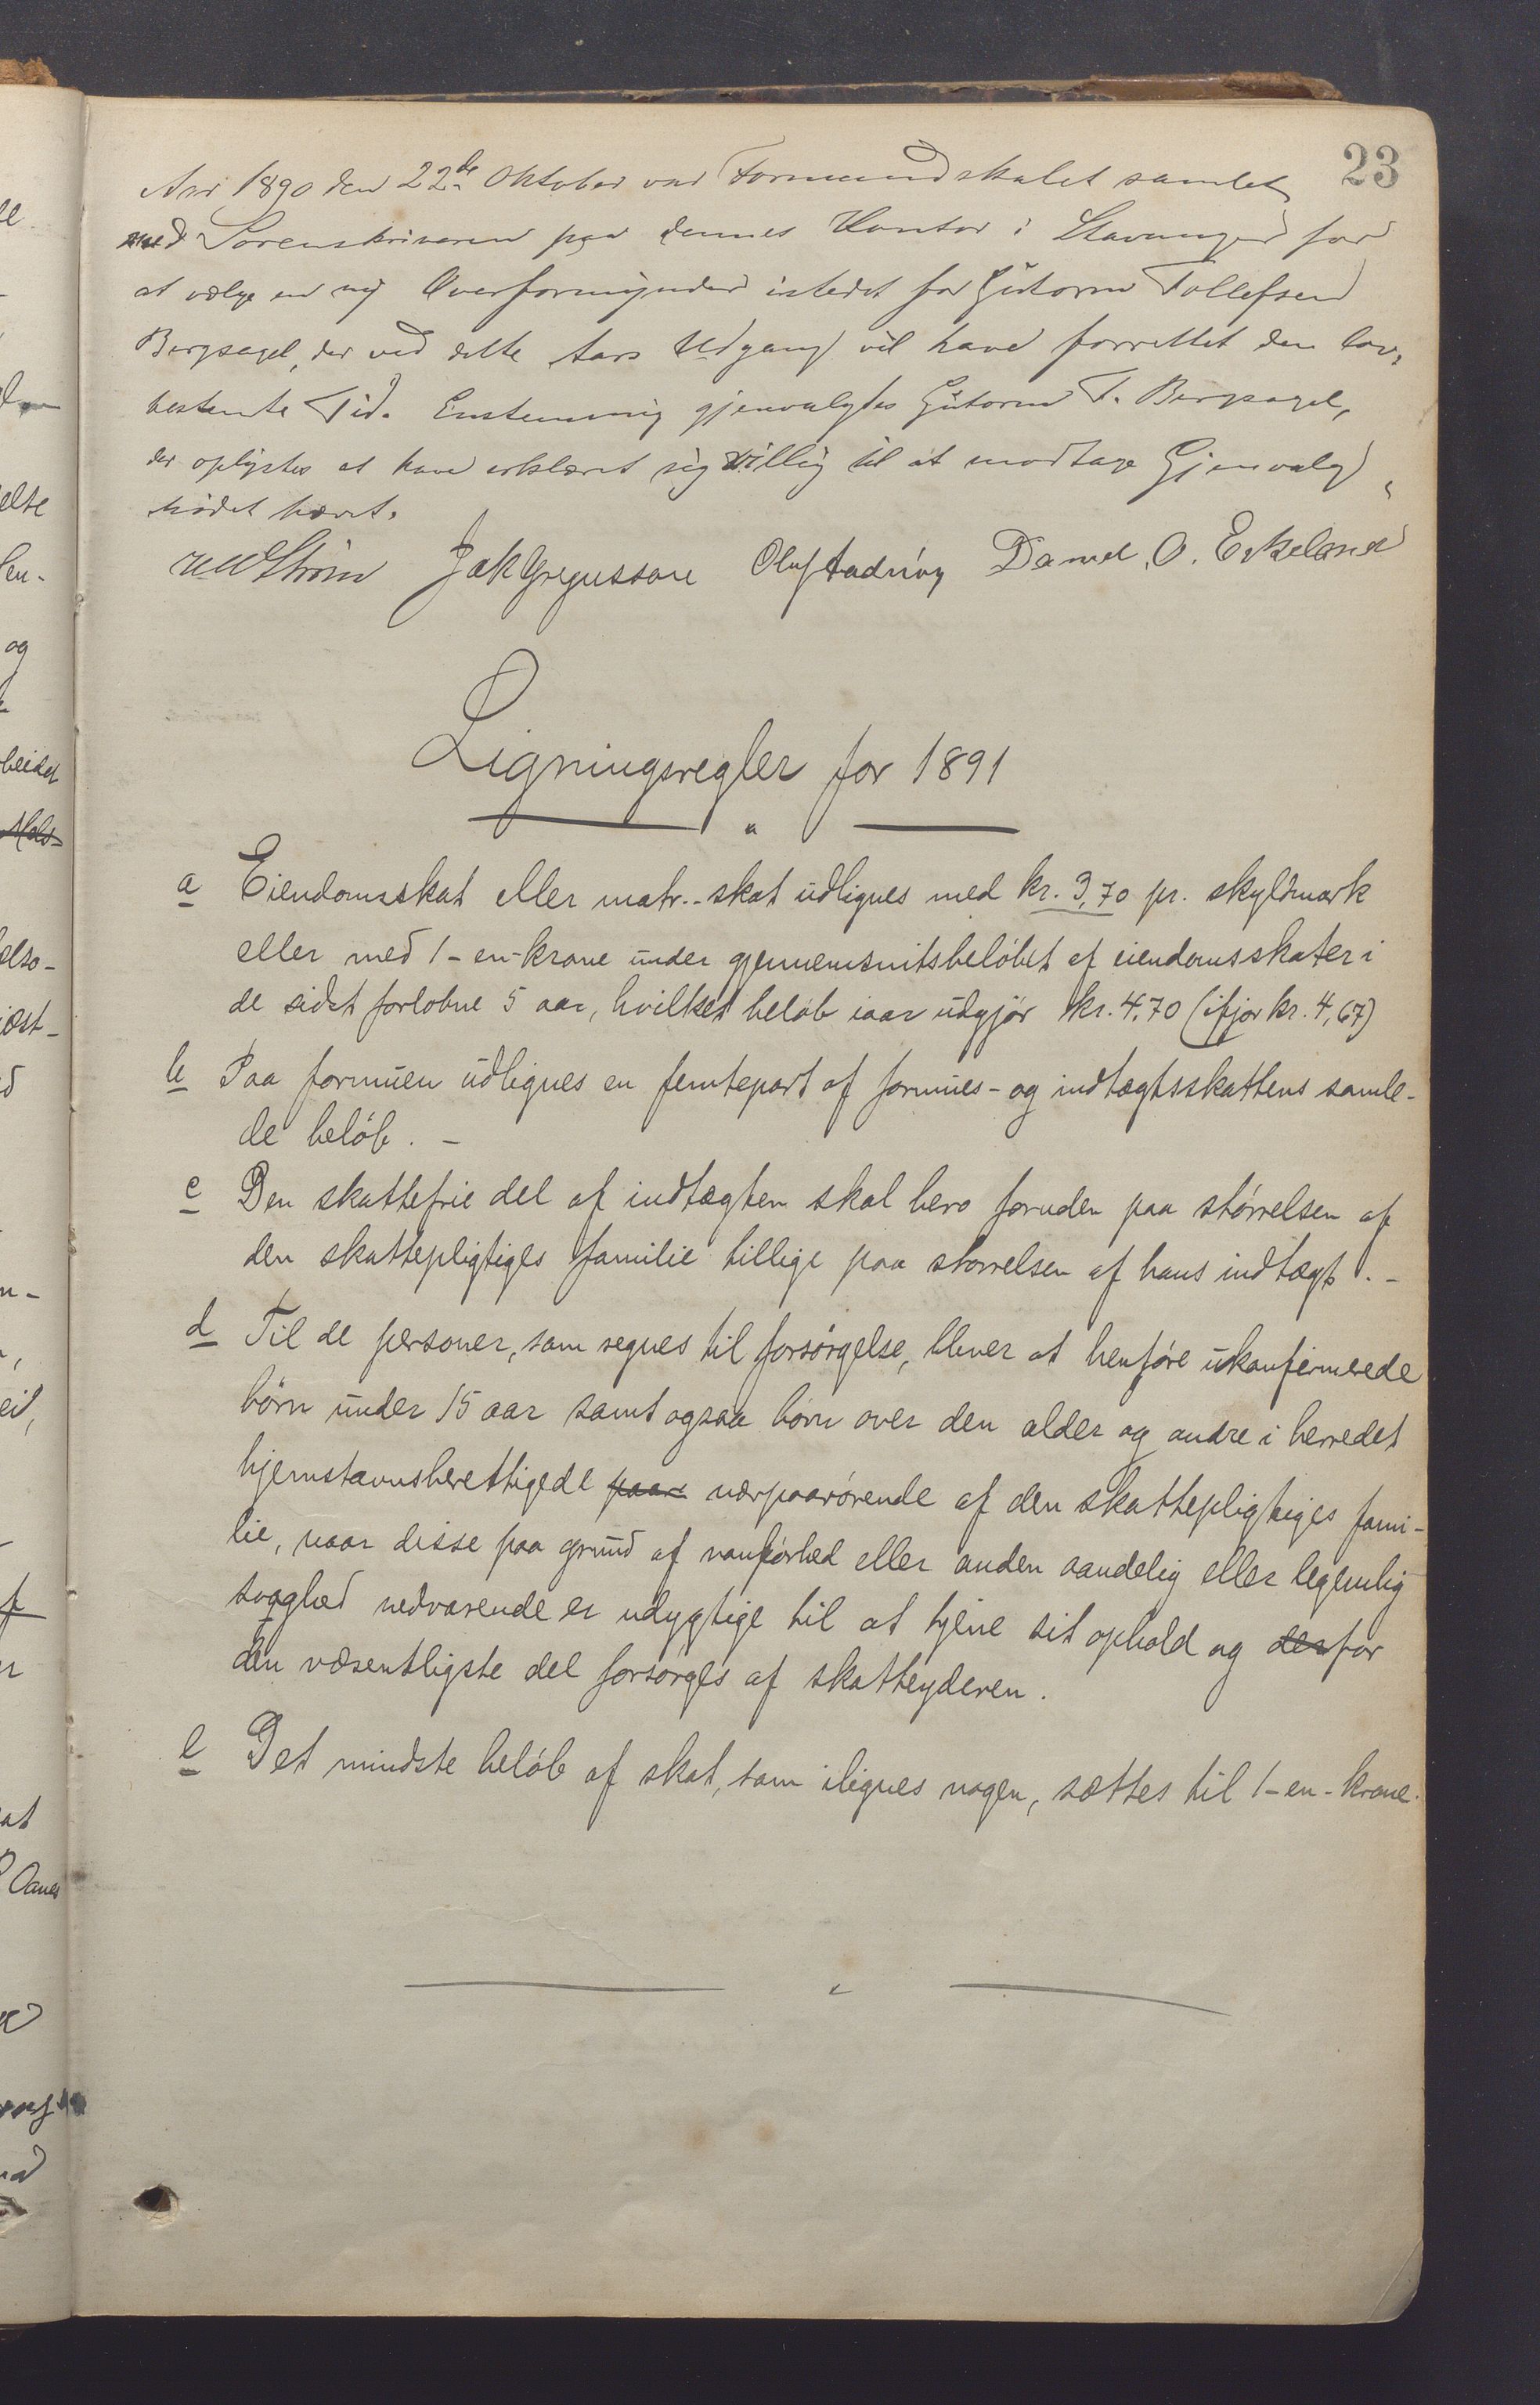 23
Aar 1890 den 22de Oktober var Formandskabet samlet
med Sorenskriveren paa dennes Kontor i Stavanger for
at vælge en ny Overformynder istedet for Gutorm Tollefsen
Bergsagel, der ved dette Aars Udgang vil have forrettet den lov-
bestemte Tid. Enstemmig gjenvalgtes Gutorm T. Bergsagel,
der oplystes at have erklæret sig villig til at modtage Gjenvalg.
Mødet hævet.
Strøm Jak Gregussøn Oluf Aadnøy Daniel O. Eikeland
Ligningsregler for 1891
a Eiendomsskat eller matr.-skat udlignes med kr. 3,70 pr. skyldmark
eller med 1-en-krone under gjennemsnitsbeløbet af eiendomsskater i
de sidst forløbne 5 aar, hvilket beløb iaar udgjør kr. 4,70 (ifjor kr. 4,67)
b Paa formuen udlignes en femtepart af formues- og indtægtsskattens samle-
de beløb. -
c Den skattefrie del af indtægten skal bero foruden paa størrelsen af
den skattepligtiges familie tillige paa størrelsen af hans indtægt. -
d Til de personer, som regnes til forsørgelse, bliver at henføre ukonfirmerede
børn under 15 aar samt ogsaa børn over den alder og andre i herredet
hjemstavnsberettigede paar nærpaarørende af den skattepligtiges fami-
lie, naar disse paa grund af vanførhed eller anden aandelig eller legemlig
svaghed vedvarende er udygtige til at tjene sit ophold og derfor
den væsentligste del forsørges af skatteyderen.
e Det mindste beløb af skat, som ilignes nogen, sættes til 1-en-krone.